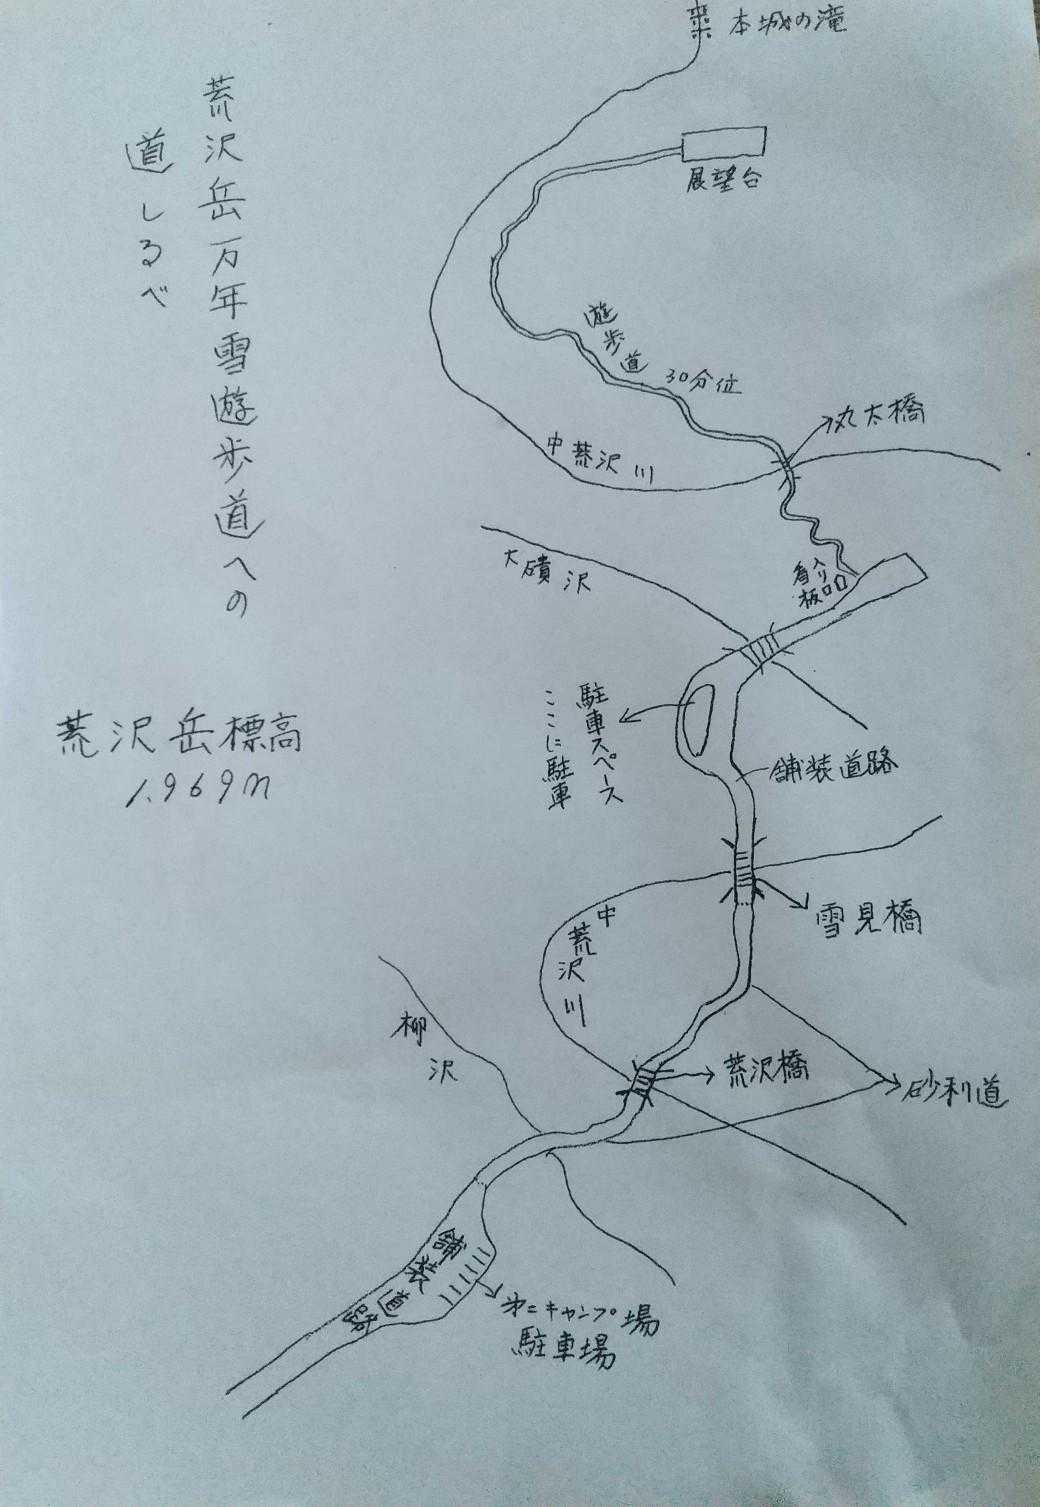 荒沢岳万年雪遊歩道への
道しるべ
荒沢岳標高
1.969m
本城の滝
展望台
遊歩道 30分位
丸太橋
中荒沢川
大磧沢
入り口
看板
駐車スペース
ここに駐車
舗装道路
雪見橋
中荒沢川
柳沢
荒沢橋
砂利道
舗装道路
第二キャンプ場
駐車場